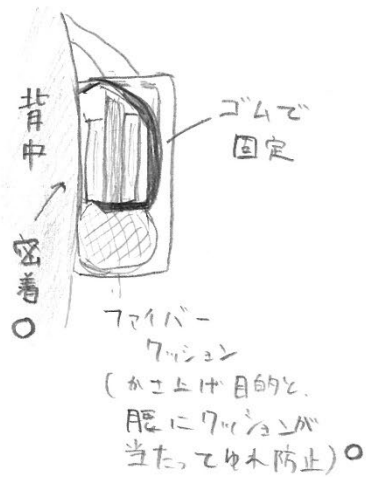 背中
密着
○
ゴムで
固定
ファイバー
クッション
(かさ上げ目的と、
腰にクッションが
当たってゆれ防止)○